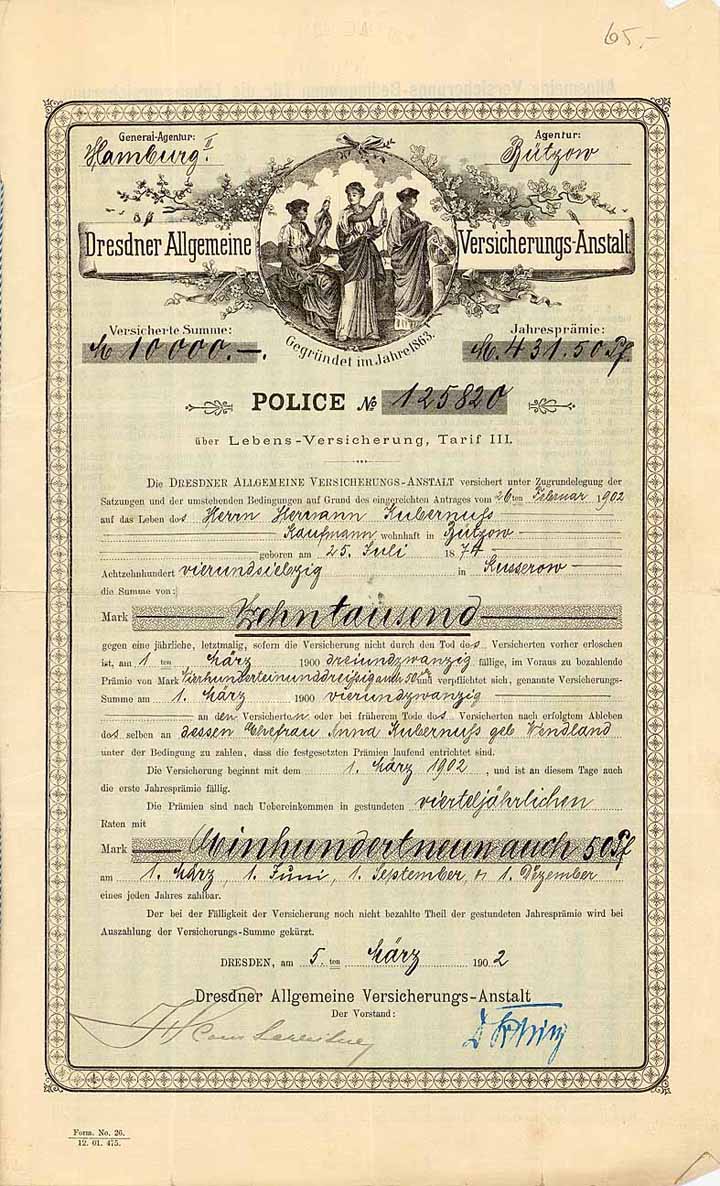 65,-
General-Agentur: Agentur:
Hamburg II Bützow
Dresdner Allgemeine Versicherungs-Anstalt
Gegründet im Jahre 1863.
Versicherte Summe: Jahresprämie:
M 10000.-. M. 431.50 Pf
POLICE No 125820
über Lebens-Versicherung, Tarif III.
Die DRESDNER ALLGEMEINE VERSICHERUNGS-ANSTALT versichert unter Zugrundelegung der
Satzungen und der umstehenden Bedingungen auf Grund des eingereichten Antrages vom 26ten Februar 1902
auf das Leben des Herrn Hermann Kubernuß
Kaufmann wohnhaft in Bützow
geboren am 25. Juli 1874
Achtzehnhundert vierundsiebzig in Kusserow
die Summe von:
Mark Zehntausend
gegen eine jährliche, letztmalig, sofern die Versicherung nicht durch den Tod des Versicherten vorher erloschen
ist, am 1ten März 1900 dreiundzwanzig fällige, im Voraus zu bezahlende
Prämie von Mark Vierhunderteinunddreißig auch 50 Pf und verpflichtet sich, genannte Versicherungs-
Summe am 1. März 1900 vierundzwanzig
an den Versicherten oder bei früherem Tode des Versicherten nach erfolgtem Ableben
des selben an dessen Ehefrau Anna Kubernuß geb Wendland
unter der Bedingung zu zahlen, dass die festgesetzten Prämien laufend entrichtet sind.
Die Versicherung beginnt mit dem 1. März 1902, und ist an diesem Tage auch
die erste Jahresprämie fällig.
Die Prämien sind nach Uebereinkommen in gestundeten vierteljährlichen
Raten mit
Mark Einhundertneun auch 50 Pf
am 1. März, 1. Juni, 1. September, 1. Dezember
eines jeden Jahres zahlbar.
Der bei der Fälligkeit der Versicherung noch nicht bezahlte Theil der gestundeten Jahresprämie wird bei
Auszahlung der Versicherungs-Summe gekürzt.
DRESDEN, am 5.ten März 1902
Dresdner Allgemeine Versicherungs-Anstalt
Der Vorstand:
Form. No. 26.
12. 01. 475.